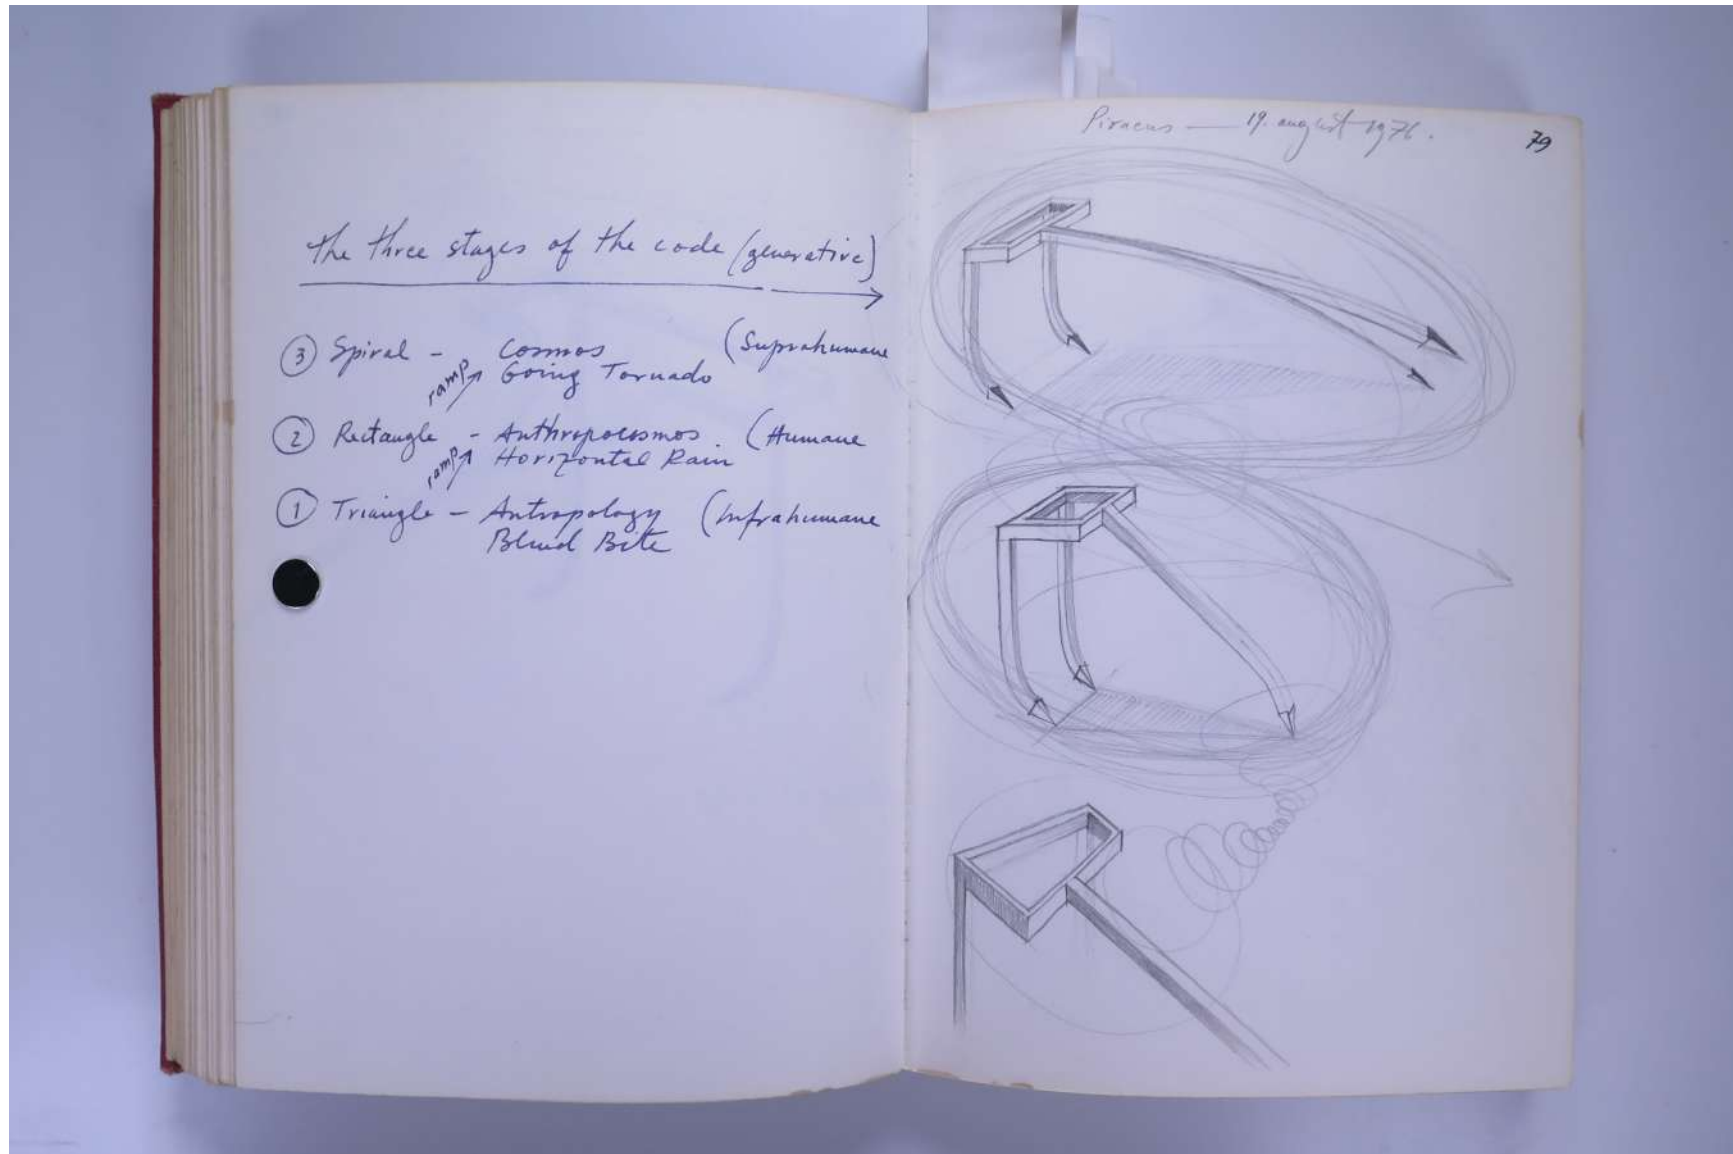 the three stages of the code (generative)
③ Spiral - Cosmos (Suprahumane
ramp Going Tornado
② Rectangle - Anthropocosmos. (Humane
ramp Horizontal Rain
① Triangle - Antropology (Infrahumane
Blind Bite
Piraeus — 19. august 1976.
79